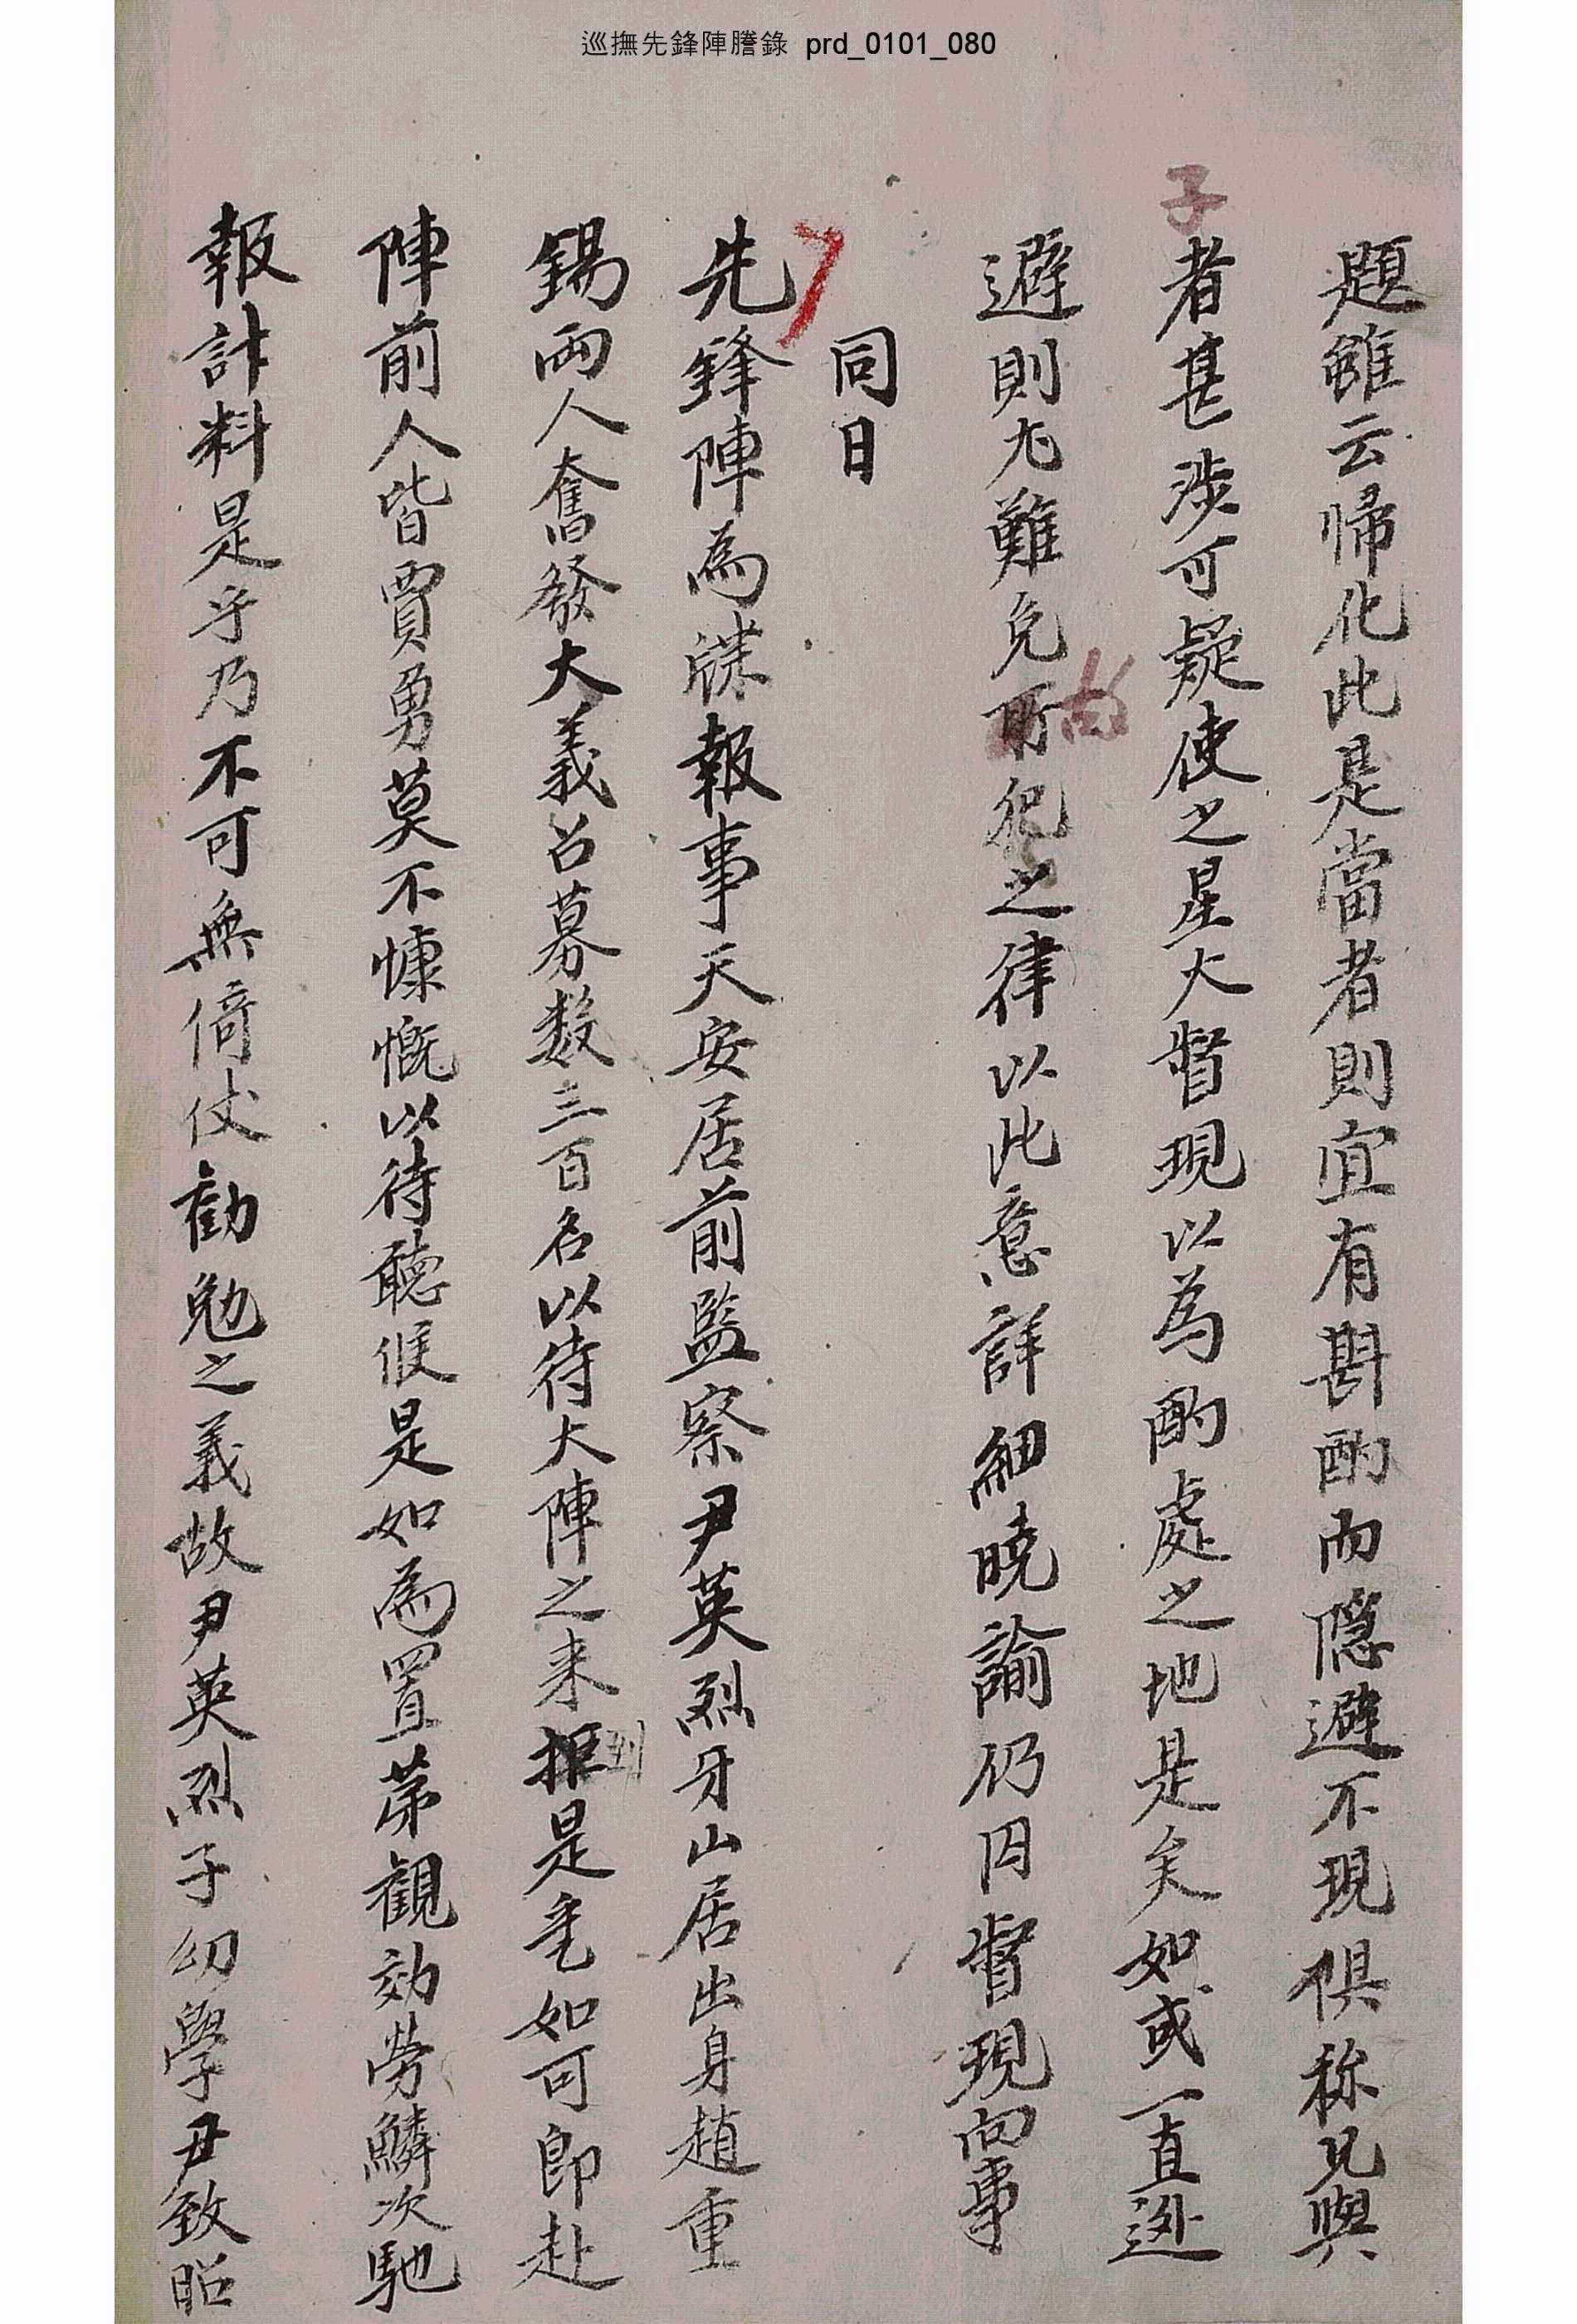 巡撫先鋒陣謄錄 prd_0101_080
題雖云歸化此是當者則宜有斟酌而隱避不現俱称兄與
子
者甚涉可疑使之星火督現以為酌處之地是矣如或一直逊
避則尤難免所犯之律以此意詳細曉諭仍囙督現向事
故
同日
先鋒陣為牒報事天安居前監察尹英烈牙山居出身趙重
錫兩人奮發大義召募数三百名以待大陣之来拒是乎如可即赴
到
陣前人皆賈勇莫不慷慨以待聽候是如為置苐觀効勞鱗次馳
報計料是乎乃不可無倚仗勸勉之義故尹英烈子幼學尹致昭